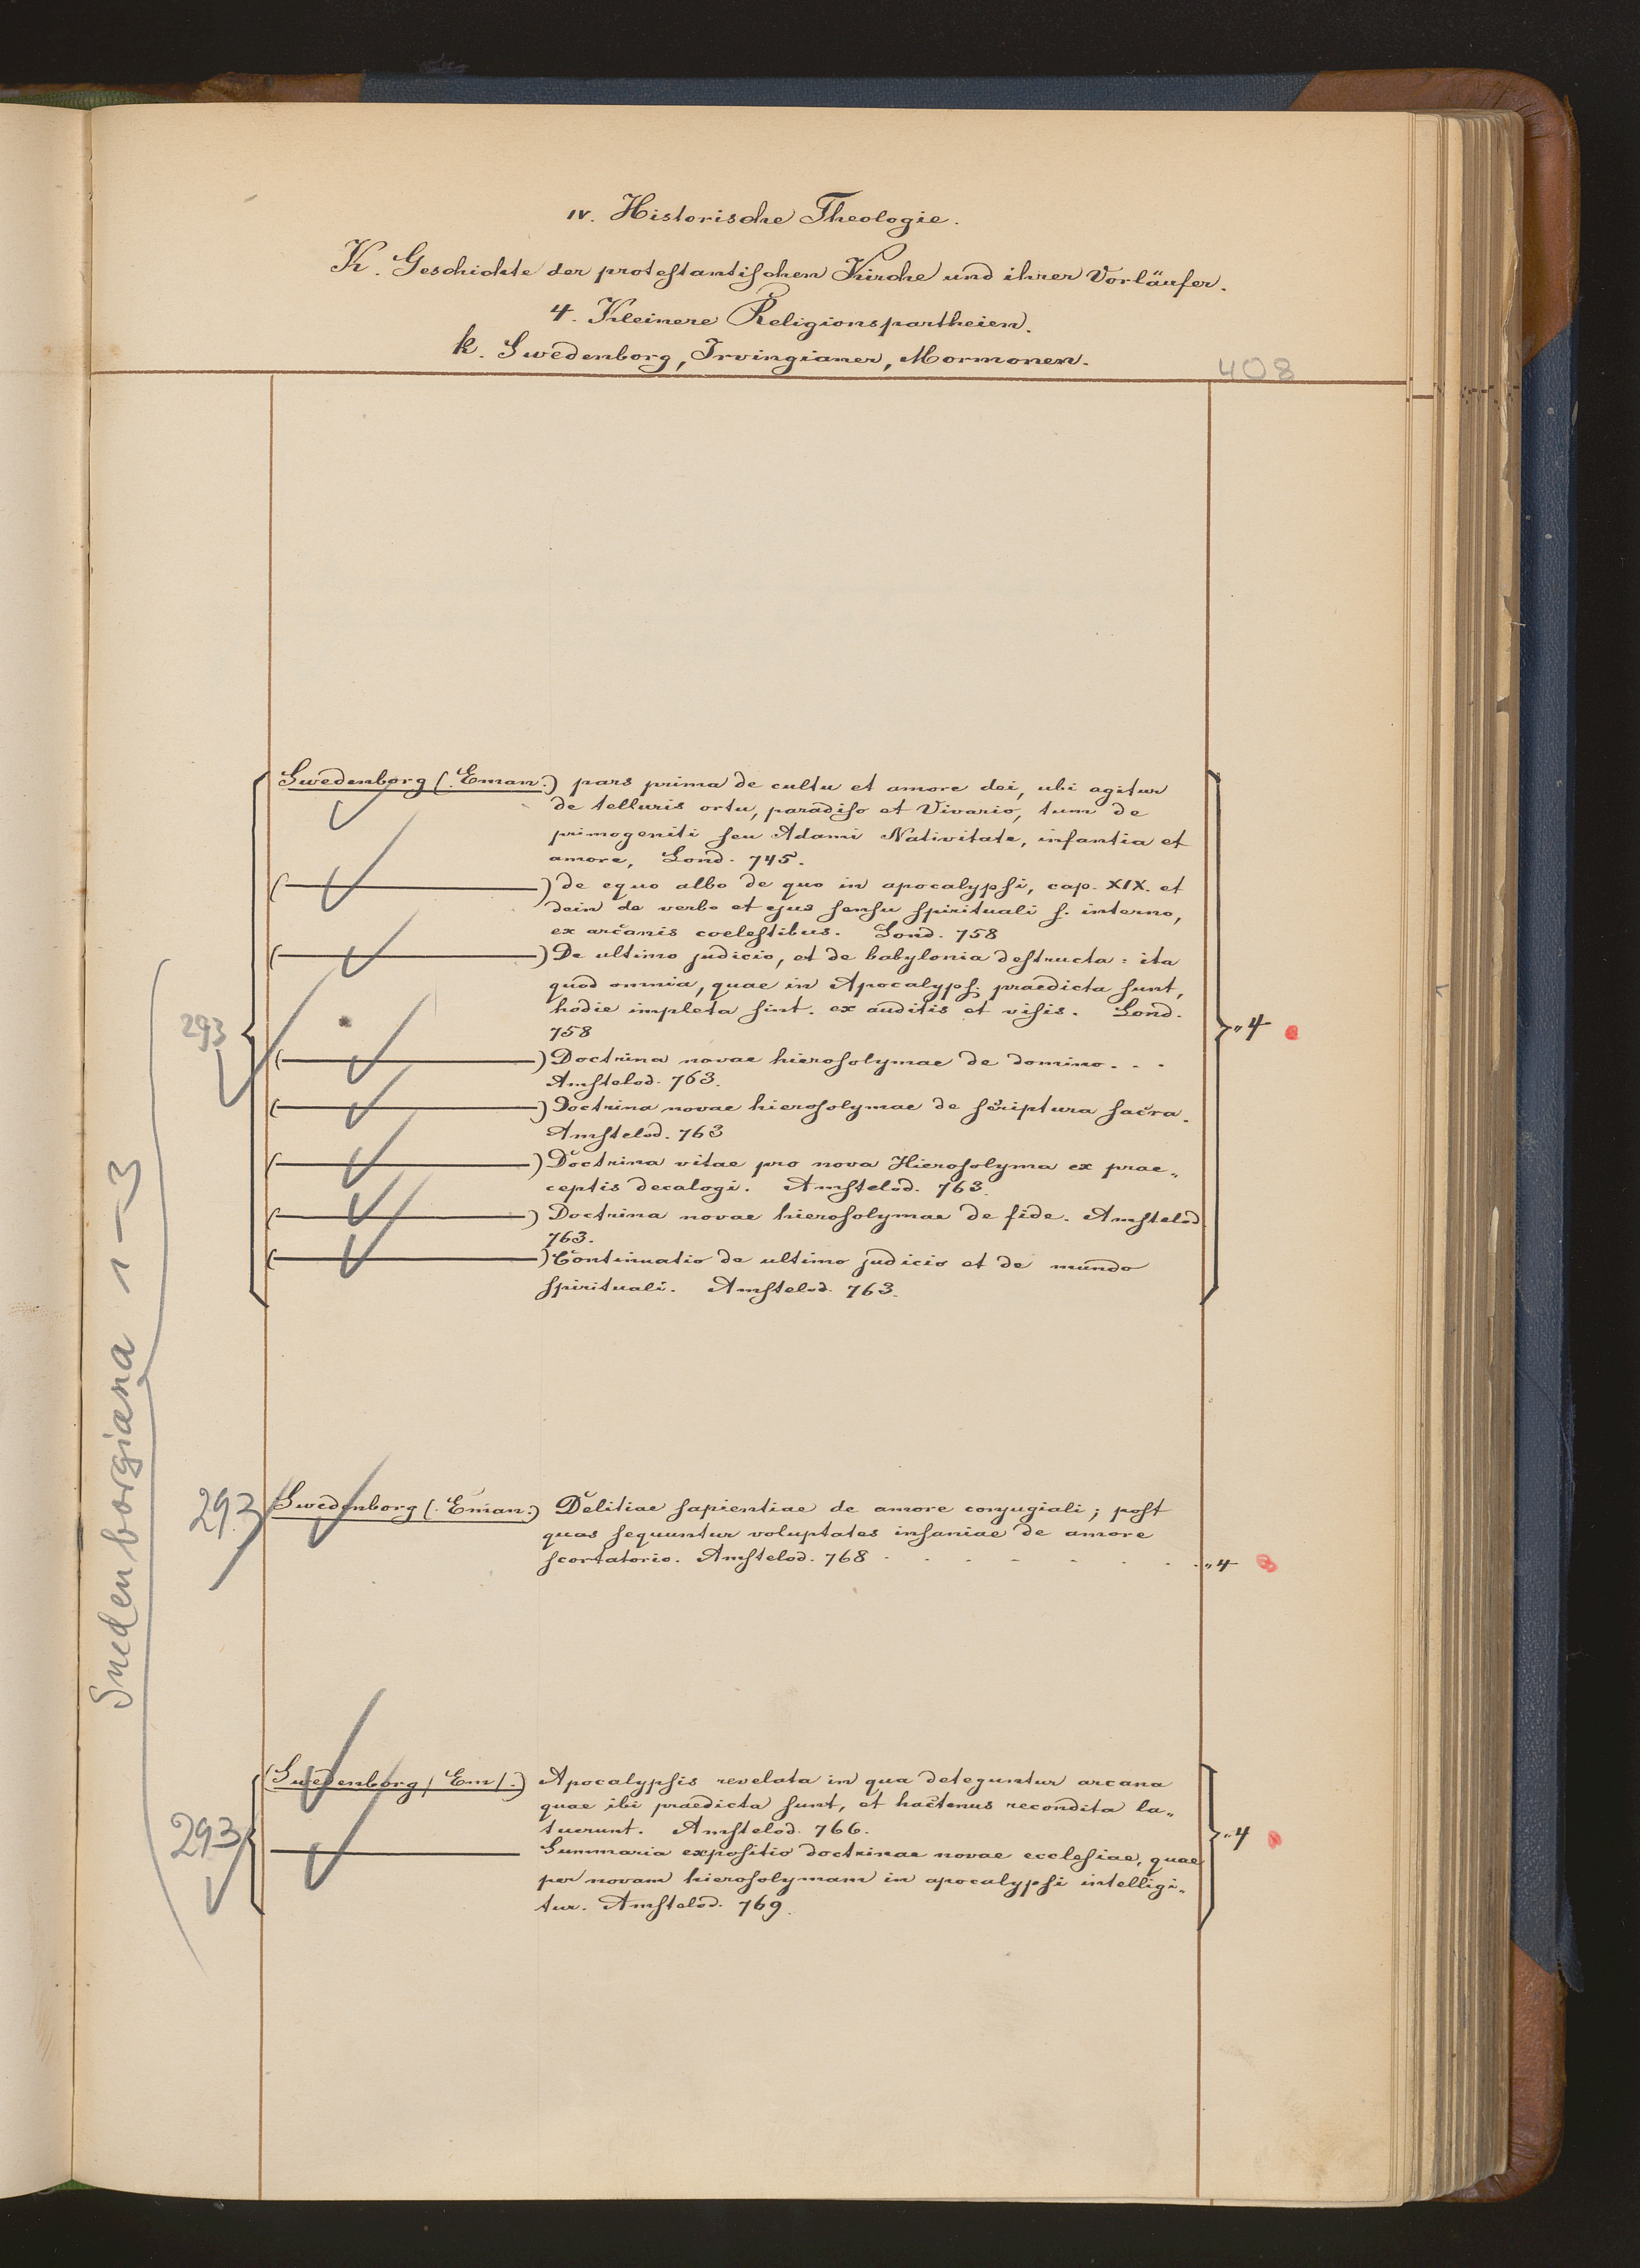 IV. Historische Theologie.
K. Geschichte der protestantischen Kirche und ihrer Vorläufer.
4. Kleinere Religionspartheien.
k. Swedenborg, Irvingianer, Mormonen.
408
Swedenborg (Eman.) pars prima de cultu et amore dei, ubi agitur
de telluris ortu, paradiso et Vivario, tum de
primogeniti seu Adami Nativitate, infantia et
amore, Lond. 745.
(———) de equo albo de quo in apocalypsi, cap. XIX. et
dein de verbo et ejus sensu spirituali s. interno,
ex arcanis coelestibus. Lond. 758
(———) De ultimo judicio, et de babylonia destructa: ita
quod omnia, quae in Apocalyps. praedicta sunt,
hodie impleta sint. ex auditis et visis. Lond.
758
293
„4
(———) Doctrina novae hierosolymae de domino. . .
Amstelod. 763.
(———) Doctrina novae hierosolymae de scriptura sacra.
Amstelod. 763
(———) Doctrina vitae pro nova Hierosolyma ex prae„
ceptis decalogi. Amstelod. 763.
(———) Doctrina novae hierosolymae de fide. Amstelod.
763.
(———) Continuatio de ultimo judicio et de mundo
spirituali. Amstelod. 763.
Swedenborgiana 1-3
293 Swedenborg (Eman.) Delitiae sapientiae de amore conjugiali; post
quas sequuntur voluptates insaniae de amore
scortatorio. Amstelod. 768 . . . . . . . „4
(Swedenborg (Em).) Apocalypsis revelata in qua deteguntur arcana
quae ibi praedicta sunt, et hactenus recondita la„
tuerunt. Amstelod. 766.
293
„4
——— Summaria expositio doctrinae novae ecclesiae, quae
per novam hierosolymam in apocalypsi intelligi„
tur. Amstelod. 769.